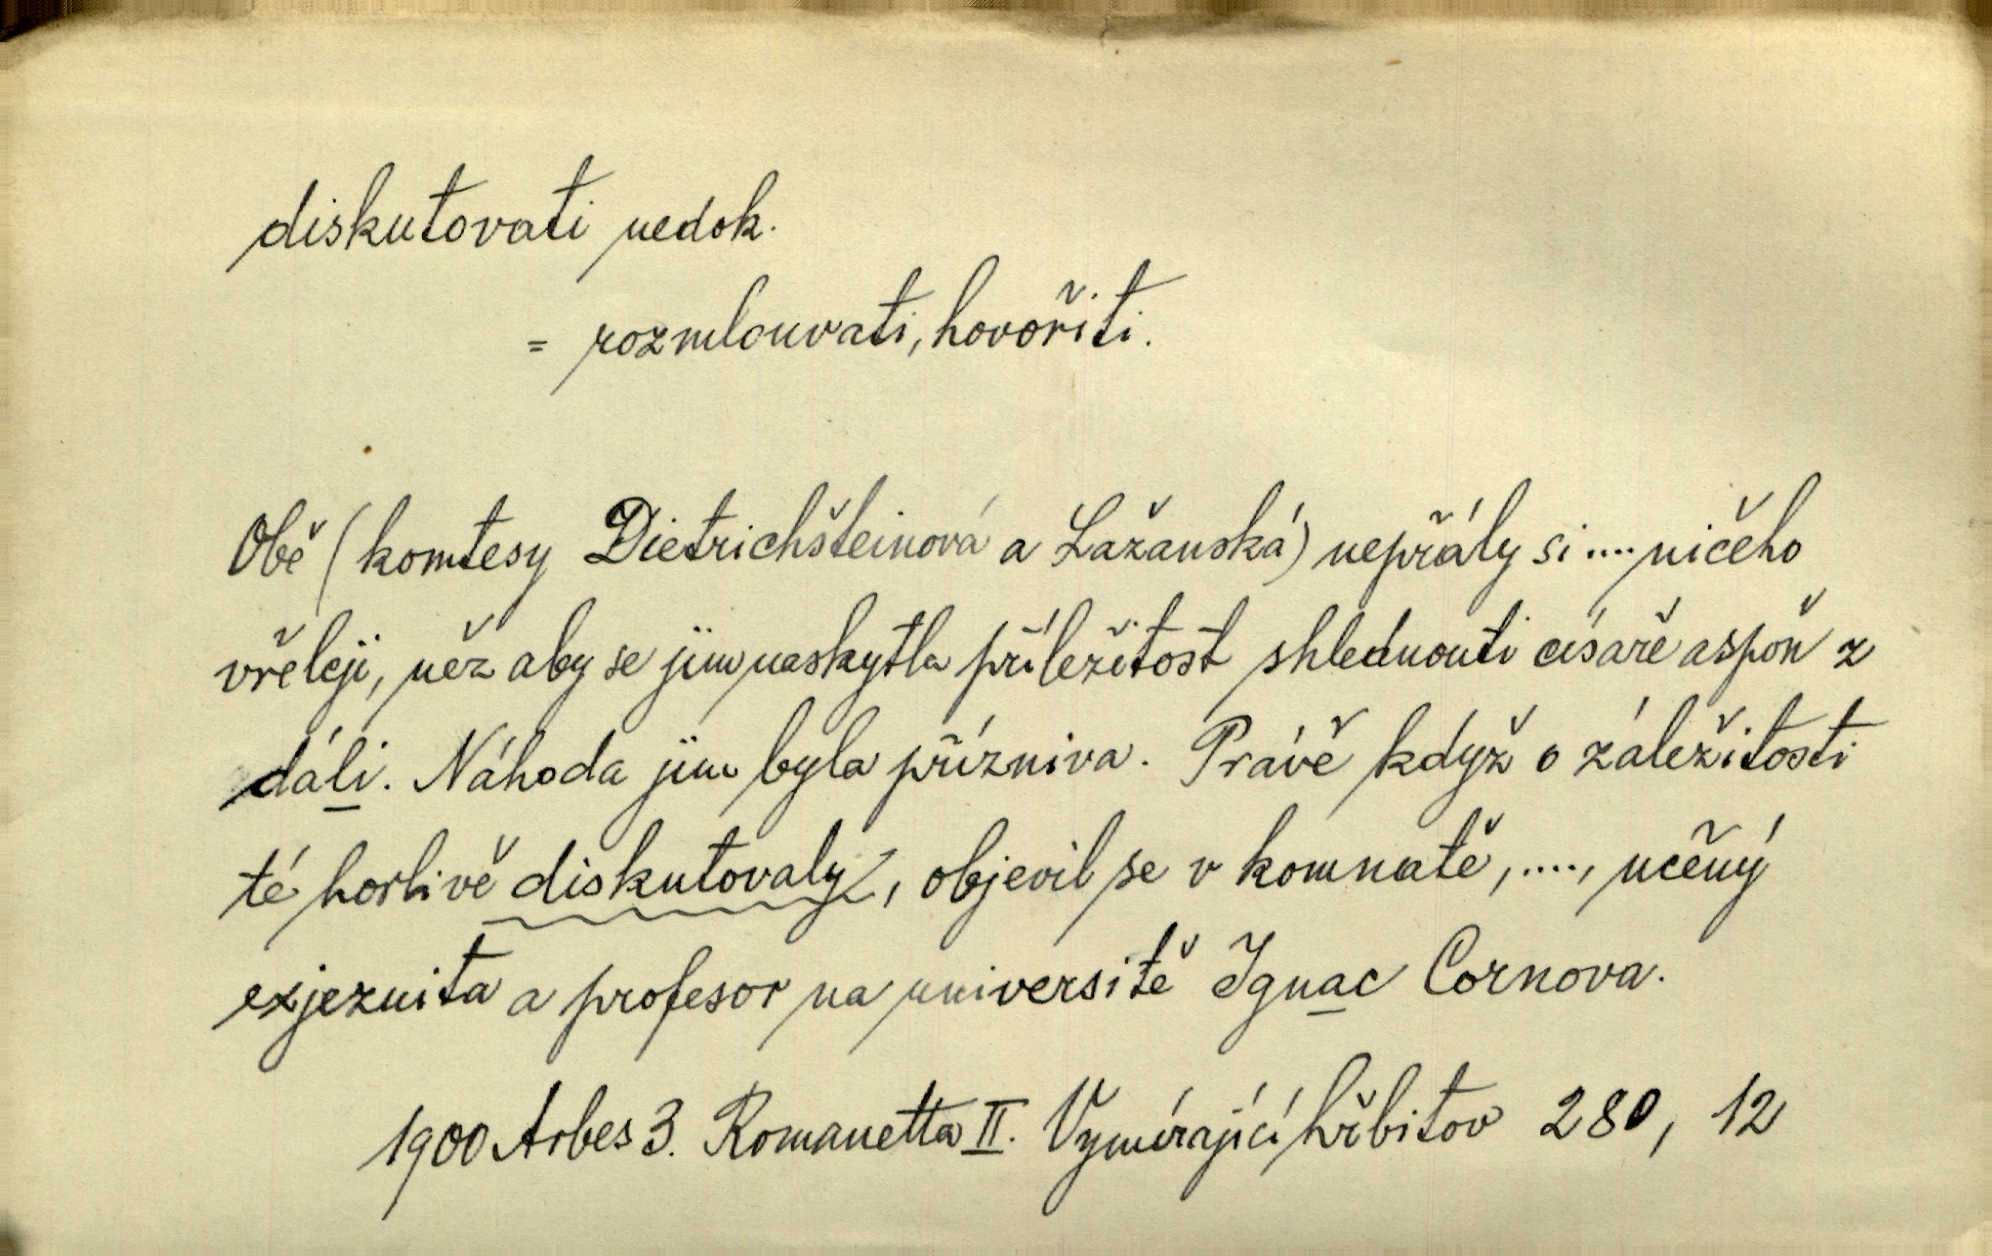 diskutovati nedok.
= rozmlouvati, hovořiti.
Obě (komtesy Dietrichšteinová a Lažanská) nepřály si .... ničeho
vřeleji, něz aby se jim naskytla příležitost shlednouti císaře aspoň z
dáli. Náhoda jim byla přízniva. Právě když o záležitosti
té horlivě diskutovaly, objevil se v komnatě, ...., učený
exjezuita a profesor na universitě Ignac Cornova.
1900 Arbes 3. Romanetta II. Vymírající hřbitov 280, 12